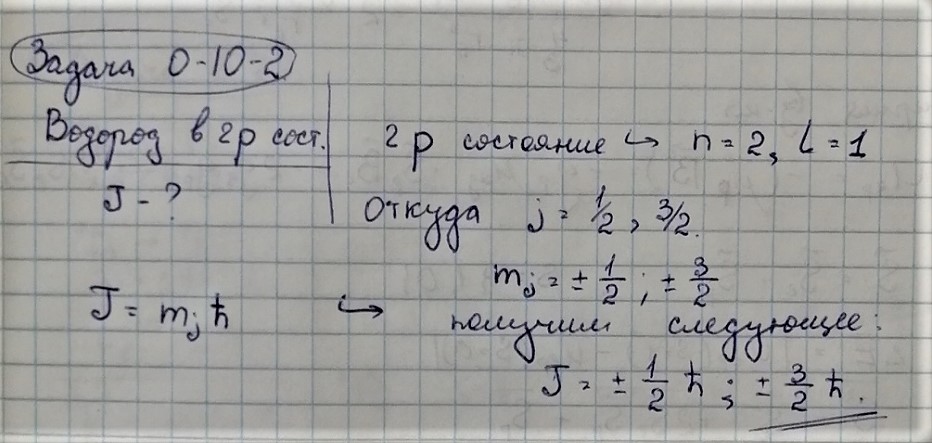 Задача 0-10-2
Водород в 2p сост.
J - ?
2p состояние ↪ n = 2, l = 1
Откуда j = 1/2, 3/2.
m_j = ± 1/2 ; ± 3/2
J = m_j ħ ↪ получим следующее:
J = ± 1/2 ħ ; ± 3/2 ħ.